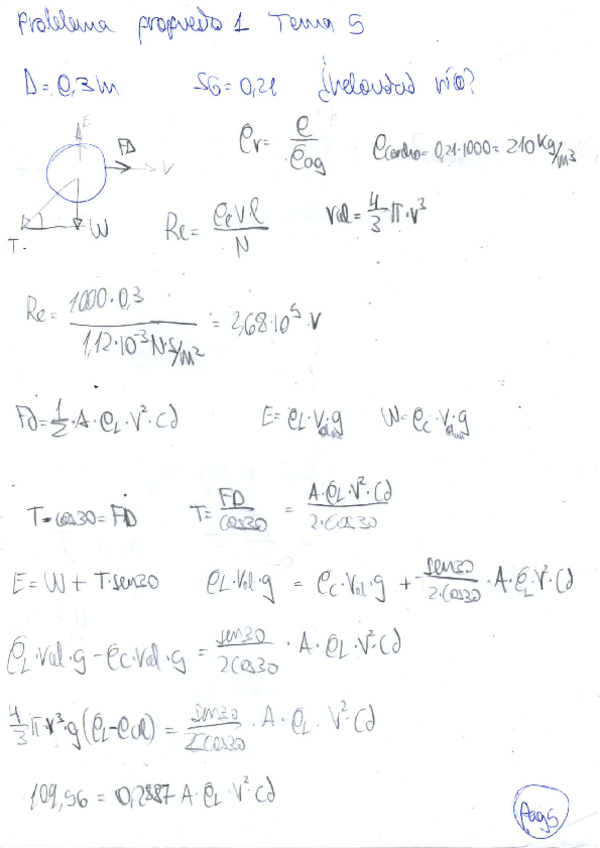 Problema propuesto 1 Tema 5
D = 0,3m SG = 0,21 ¿Velocidad río?
E
FD
V
T.
W
ρr = ρ/ρag ρcorcho = 0,21·1000 = 210 kg/m³
Re = ρ_L V l / N Vol = 4/3 π·r³
Re = 1000·0,3 / 1,12·10⁻³ N·s/m² = 2,68·10⁵·V
Fd = 1/2·A·ρ_L·V²·Cd E = ρ_L·Vol·g W = ρc·Vol·g
T·cos30 = FD T = FD/cos30 = A·ρ_L·V²·Cd / 2·cos30
E = W + T·sen30 ρ_L·Vol·g = ρc·Vol·g + sen30/2·cos30 · A·ρ_L·V²·Cd
ρ_L·Vol·g - ρc·Vol·g = sen30/2cos30 · A·ρ_L·V²·Cd
4/3 π·r³·g(ρ_L-ρcor) = sen30/2cos30 · A·ρ_L·V²·Cd
109,56 = 0,2887 A·ρ_L·V²·Cd
Pag 5